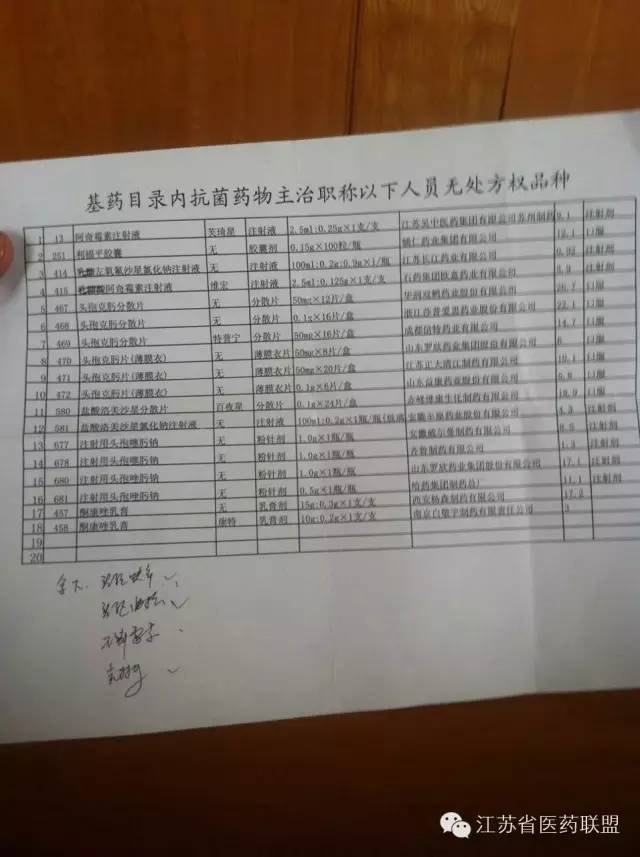 基药目录内抗菌药物主治职称以下人员无处方权品种
1 13 阿奇霉素注射液 芙琦星 注射液 2.5ml:0.25g×1支/支 江苏吴中医药集团有限公司苏州制药 注射剂
2 251 利福平胶囊 无 胶囊剂 0.15g×100粒/瓶 辅仁药业集团有限公司 口服
3 414 乳酸左氧氟沙星氯化钠注射液 无 注射液 100ml:0.2g:0.9g×1/瓶 江苏长江药业有限公司 注射剂
4 415 乳糖酸阿奇霉素注射液 维宏 注射液 2.5ml:0.125g×1支/支 石药集团欧意药业有限公司 注射剂
5 467 头孢克肟分散片 无 分散片 50mg×12片/盒 华润双鹤药业股份有限公司 26.7 口服
6 468 头孢克肟分散片 无 分散片 0.1g×16片/盒 22.1 口服
7 469 头孢克肟分散片 特普宁 分散片 50mg×16片/盒 成都倍特药业有限公司 14.7 口服
8 470 头孢克肟片(薄膜衣) 无 薄膜衣片 50mg×8片/盒 山东罗欣药业股份有限公司 6 口服
9 471 头孢克肟片(薄膜衣) 无 薄膜衣片 50mg×20片/盒 江苏正大清江制药有限公司 10.1 口服
10 472 头孢克肟片(薄膜衣) 无 薄膜衣片 0.1g×6片/盒 山东益康药业股份有限公司 口服
11 580 盐酸洛美沙星分散片 百夜星 分散片 0.1g×24片/盒 口服
12 581 盐酸洛美沙星氯化钠注射液 无 注射液 100ml:0.2g×1瓶/瓶 安徽丰原药业股份有限公司 注射剂
13 677 注射用头孢噻肟钠 无 粉针剂 1.0g×1瓶/瓶 安徽威尔曼制药有限公司 注射剂
14 678 注射用头孢噻肟钠 无 粉针剂 1.0g×1瓶/瓶 齐鲁制药有限公司 注射剂
15 680 注射用头孢噻肟钠 无 粉针剂 1.0g×1瓶/瓶 山东罗欣药业集团股份有限公司 17.1 注射剂
16 681 注射用头孢噻肟钠 无 粉针剂 0.5g×1瓶/瓶 哈药集团制药总厂 11.1 注射剂
17 457 酮康唑乳膏 无 乳膏剂 15g:0.3g×1支/支 西安杨森制药有限公司 17.2
18 458 酮康唑乳膏 康特 乳膏剂 10g:0.2g×1支/支 南京白敬宇制药有限责任公司 3
19
20
江苏省医药联盟